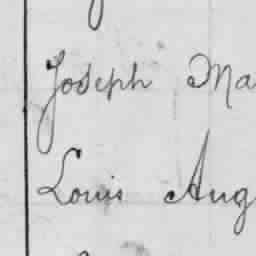 Joseph Ma
Louis Aug